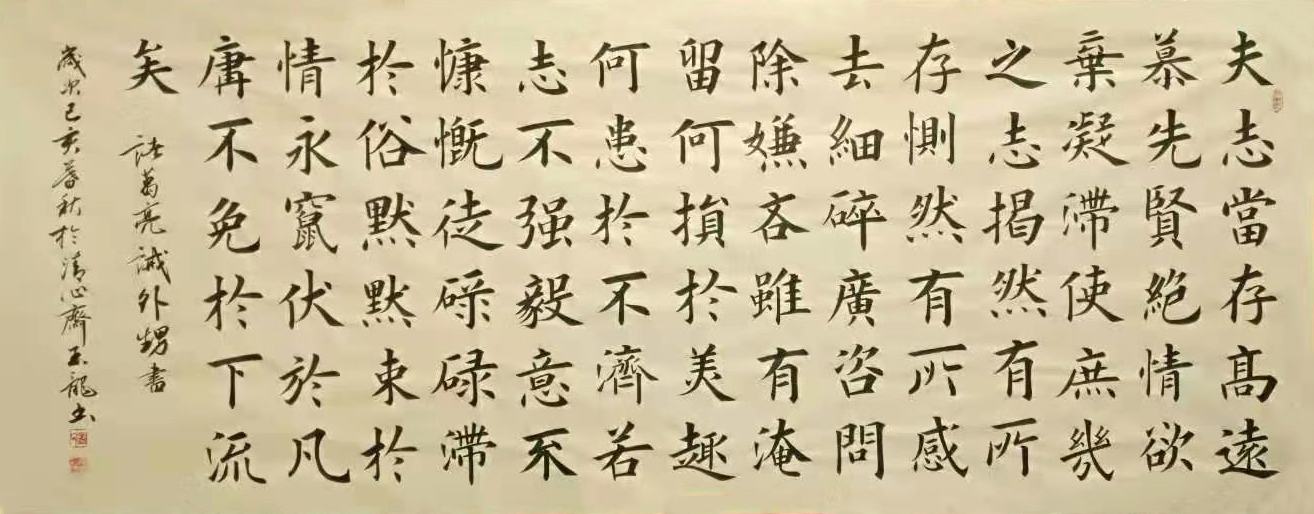 夫志當存高遠
慕先賢絕情欲
棄凝滯使庶幾
之志揭然有所
存惻然有所感
去細碎廣咨問
除嫌吝雖有淹
留何損於美趣
何患於不濟若
志不强毅意不
慷慨徒碌碌滯
於俗默默束於
情永竄伏於凡
庸不免於下流
矣
諸葛亮誡外甥書
歲次己亥暮秋於清心齋玉龍書